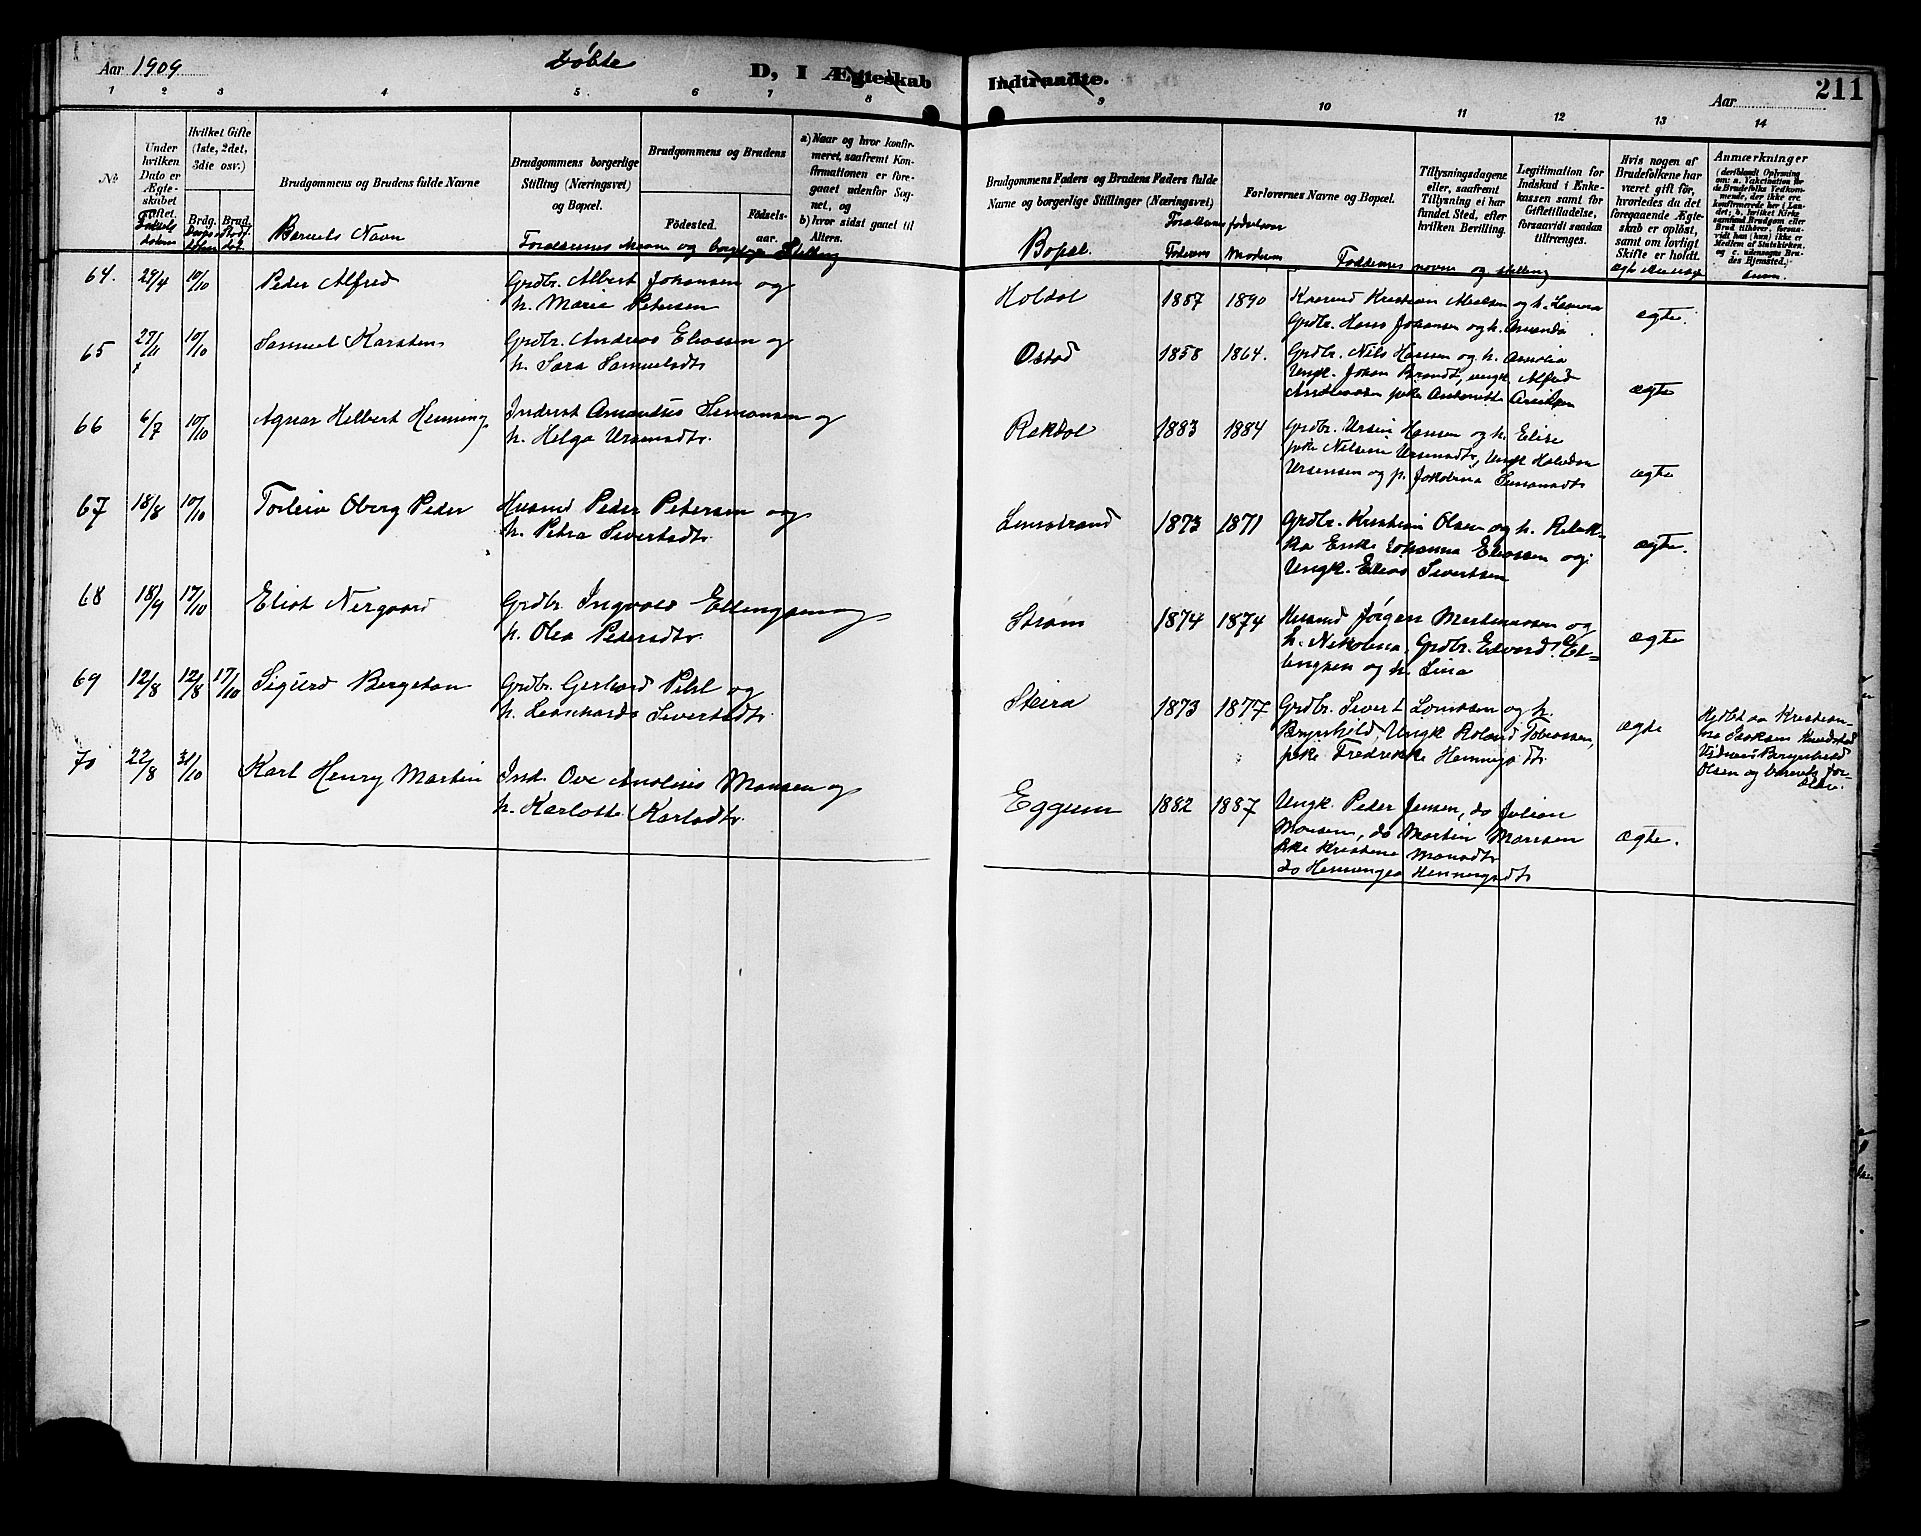 Aar 1909
Døbte
D, I Ægteskab Indtraadte.
Aar
211
1 2 3 4 5 6 7 8 9 10 11 12 13 14
№
Under hvilken Dato er Ægteskabet stiftet.
Hvilket Gifte (1ste, 2det, 3die osv.)
Brdg. Brud.
Brudgommens og Brudens fulde Navne
Barnets Navn
Brudgommens borgerlige Stilling (Næringsvei) og Bopæl.
Forældrenes Navn og borgerlige Stilling
Brudgommens og Brudens
Födested. Födselsaar.
a) Naar og hvor konfirmeret, saafremt Konfirmationen er foregaaet udenfor Sognet, og
b) hvor sidst gaaet til Alters.
Brudgommens Faders og Brudens Faders fulde Navne og borgerlige Stillinger (Næringsvei)
Bopæl.
Forældrenes fødselsaar
Faderens Moderens
Forlovernes Navne og Bopæl.
Faddernes navne og stilling
Tillysningsdagene eller, saafremt Tillysning ei har fundet Sted, efter hvilken Bevilling.
Legitimation for Indskud i Enkekassen samt for Giftetilladelse, forsaavidt saadan tiltrænges.
Hvis nogen af Brudefolkene har været gift för, hvorledes da det foregaaende Ægteskab er oplöst, samt om lovligt Skifte er holdt.
Anmærkninger
64. 29/4 10/10 Peder Alfred
Grdbr. Albert Johansen og
h. Marie Petersen
Holdal 1887 1890
Grdbr. Hans Johansen og h. Amanda
ægte.
65 27/11 10/10 Samuel Karsten
Grdbr. Andreas Eliassen og
h. Sara Samuelsdtr
Ostad 1858 1864.
Grdbr. Nils Hansen og h. Amalia
Ungk. Johan Brandt, ungk. Alfred
ægte
66 6/7 10/10 Agnar Helbert Henning
Inderst Amandus Simonsen og
h. Helga Ursinsdtr.
Rakdal 1883 1884
Grdbr. Ursin Hansen og h. Elise
pike Nilsine Ursinsdtr, Ungk Halvdan
Ursinsen og p. Jakobina Simonsdtr
ægte
67 18/8 10/10 Torleiv Oberg Peder
Husmd Peder Petersen og
h. Petra Sivertsdtr
Limstrand 1873 1871
Grdbr. Kristian Olsen og h. Rebek-
ka Enke Johanna Eliassen og
Ungk. Elias Sivertsen
ægte.
68 18/9 17/10 Eliot Nergaard
Grdbr. Ingvald Ellingsen og
h. Olea Pedersdtr
Strøm 1874 1874
Husmd Jørgen Mortensen og
h. Nikoline, Grdbr. Edvard El-
lingsen og h. Lina
ægte
69 12/8 12/8 17/10 Sigurd Bergeton
Grdbr. Gerhard Pihl og
h. Leonharda Sivertsdtr
Steira 1873 1877
Grdbr. Sivert Lorntsen og h.
Brynhild, Ungk Roland Tobiassen,
pike Fredrikke Henningsdtr.
ægte
Hjdbt av Kristian-
Olsen og barnets for-
ældre.
70 22/8 31/10 Karl Henry Martin
Ind. Ove Anolius Monsen og
h. Karlotte Karlsdtr.
Eggum 1882 1887
Ungk. Peder Jensen, do Julian
Monsen, do Martin Monsen
Pike Kristine Monsdtr
do Hermingea Henningsdtr
ægte.